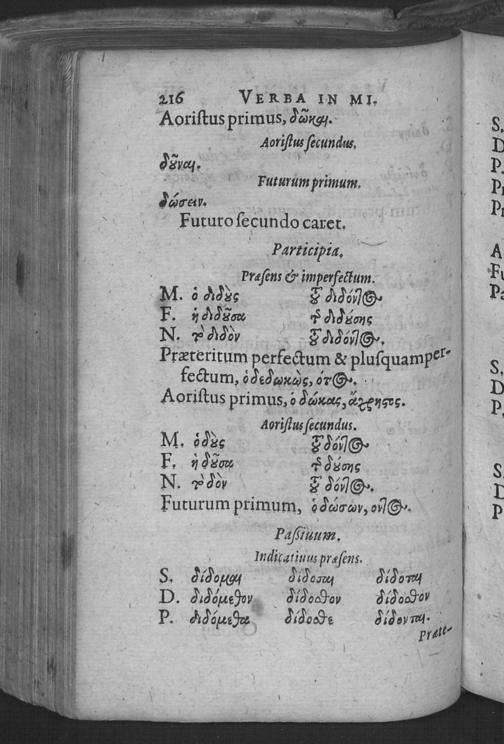 216 VERBA IN MI.
Aoristus primus, δῶκαι.
Aoristus secundus.
δοῦναι.
Futurum primum.
δώσειν.
Futuro secundo caret.
Participia.
Præsens & imperfectum.
M. ὁ διδοὺς τοῦ διδόντος
F. ἡ διδοῦσα τῆς διδούσης
N. τὸ διδὸν τοῦ διδόντος.
Præteritum perfectum & plusquamper-
fectum, ὁ δεδωκὼς, ότος.
Aoristus primus, ὁ δώκας, ἄχρηστος.
Aoristus secundus.
M. ὁ δοὺς τοῦ δόντος
F. ἡ δοῦσα τῆς δούσης
N. τὸ δὸν τοῦ δόντος.
Futurum primum, ὁ δώσων, οντος.
Passiuum.
Indicatiuus præsens.
S. δίδομαι δίδοσαι δίδοται
D. διδόμεθον δίδοσθον δίδοσθον
P. διδόμεθα δίδοσθε δίδονται.
Præte-
S.
D
P.
P
P
A
Fu
Pa
S,
D
P,
S
D
P